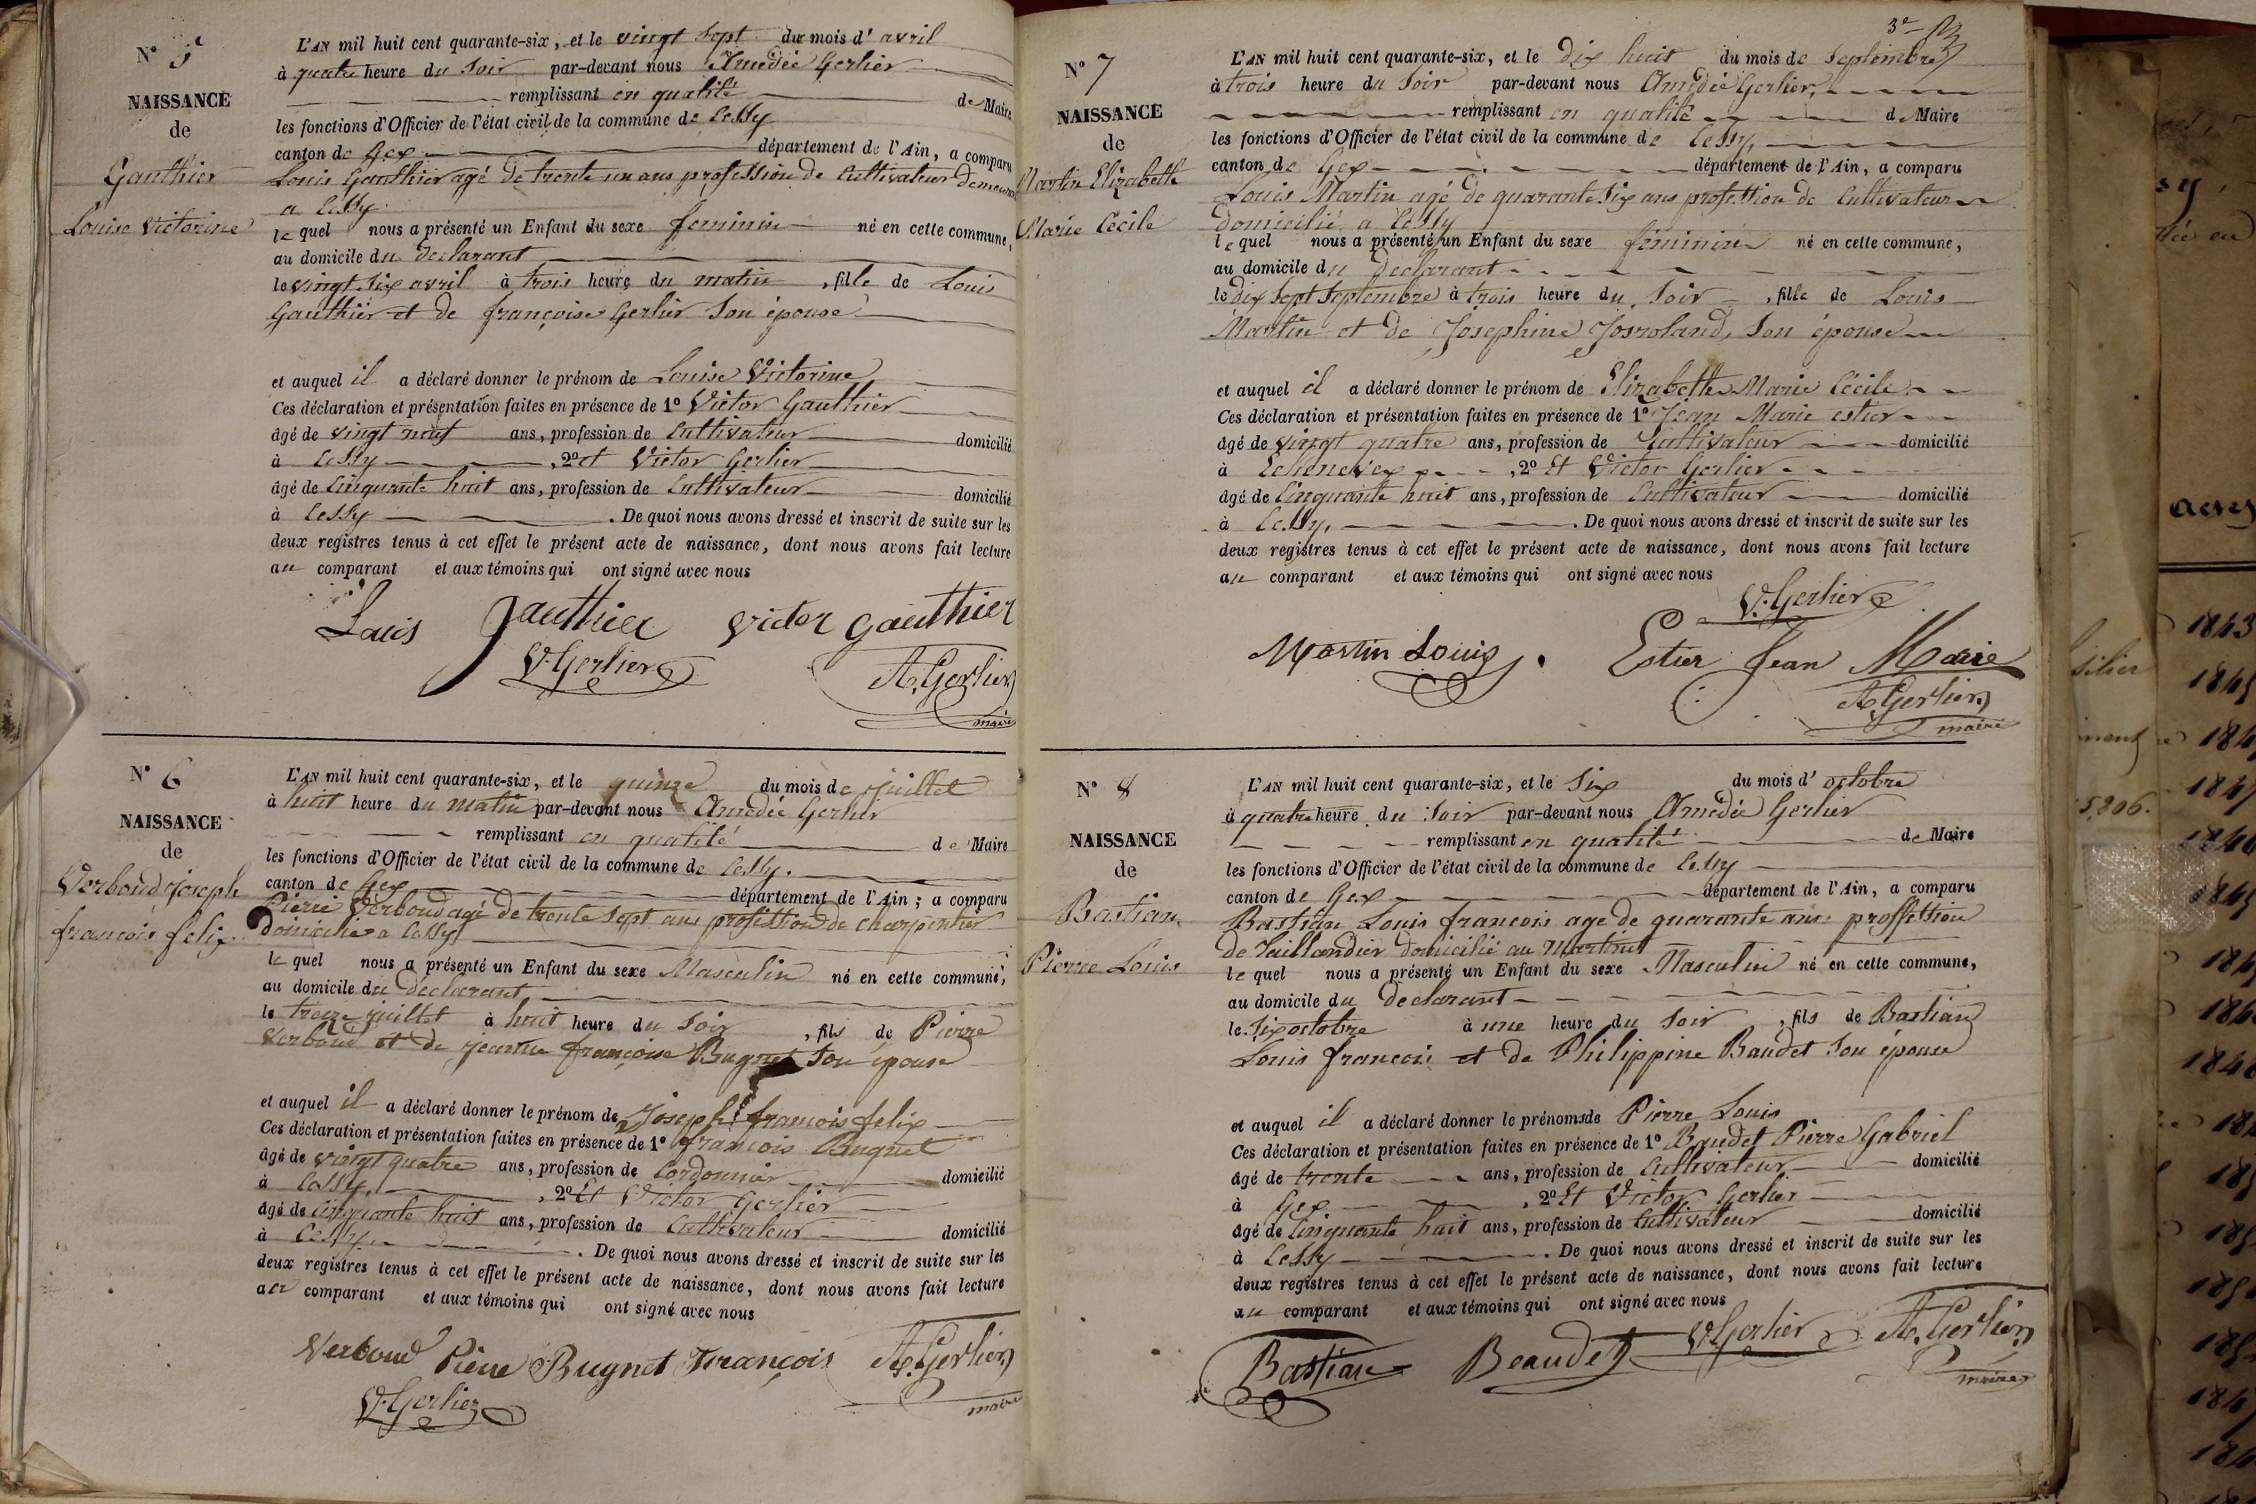 N° 5
NAISSANCE
de
Gauthier
Louise Victorine
L'AN mil huit cent quarante-six, et le vingt sept du mois d'avril
à quatre heure du Soir par-devant nous Amédée Gerlier
remplissant en qualité de Maire
les fonctions d'Officier de l'état civil de la commune de Cessy
canton de Gex département de l'Ain, a comparu
Louis Gauthier agé de trente un ans profession de Cultivateur demeurant
a Cessy.
le quel nous a présenté un Enfant du sexe feminin né en cette commune,
au domicile du declarant
le vingt Six avril à trois heure du matin, fille de Louis
Gauthier et de françoise Gerlier Son épouse
et auquel il a déclaré donner le prénom de Louise Victorine
Ces déclaration et présentation faites en présence de 1° Victor Gauthier
âgé de vingt neuf ans, profession de Cultivateur domicilié
à Cessy, 2° et Victor Gerlier
âgé de Cinquante huit ans, profession de Cultivateur domicilié
à Cessy. De quoi nous avons dressé et inscrit de suite sur les
deux registres tenus à cet effet le présent acte de naissance, dont nous avons fait lecture
au comparant et aux témoins qui ont signé avec nous
Louis Gauthier Victor Gauthier
V. Gerlier A. Gerlier
maire
N° 6
NAISSANCE
de
Verboud Joseph
françois felix
L'AN mil huit cent quarante-six, et le quinze du mois de Juillet
à huit heure du matin par-devant nous Amédée Gerlier
remplissant en qualité de Maire
les fonctions d'Officier de l'état civil de la commune de Cessy.
canton de Gex département de l'Ain; a comparu
Pierre Verboud agé de trente Sept ans profession de charpentier
domicilié a Cessy
le quel nous a présenté un Enfant du sexe Masculin né en cette commune,
au domicile du declarant
le treize juillet à huit heure du Soir, fils de Pierre
Verboud et de jeanne françoise Bugnet Son épouse
et auquel il a déclaré donner le prénom de Joseph françois felix
Ces déclaration et présentation faites en présence de 1° françois Bugnet
âgé de vingt quatre ans, profession de Cordonnier domicilié
à Cessy, 2° Et Victor Gerlier
âgé de Cinquante huit ans, profession de Cultivateur domicilié
à Cessy. De quoi nous avons dressé et inscrit de suite sur les
deux registres tenus à cet effet le présent acte de naissance, dont nous avons fait lecture
au comparant et aux témoins qui ont signé avec nous
Verboud Pierre Bugnet François A. Gerlier
V. Gerlier maire
3e
N° 7
NAISSANCE
de
Martin Elizabeth
Marie Cécile
L'AN mil huit cent quarante-six, et le dix huit du mois de Septembre
à trois heure du Soir par-devant nous Amédée Gerlier,
remplissant en qualité de Maire
les fonctions d'Officier de l'état civil de la commune de Cessy,
canton de Gex département de l'Ain, a comparu
Louis Martin agé de quarante Six ans profession de Cultivateur
domicilié a Cessy
le quel nous a présenté un Enfant du sexe féminin né en cette commune,
au domicile du declarant
le dix Sept Septembre à trois heure du Soir, fille de Louis
Martin et de Josephine Josroland, Son épouse
et auquel il a déclaré donner le prénom de Elizabeth Marie Cécile
Ces déclaration et présentation faites en présence de 1° Jean Marie estier
âgé de vingt quatre ans, profession de Cultivateur domicilié
à Echenevex, 2° Et Victor Gerlier
âgé de Cinquante huit ans, profession de Cultivateur domicilié
à Cessy, . De quoi nous avons dressé et inscrit de suite sur les
deux registres tenus à cet effet le présent acte de naissance, dont nous avons fait lecture
au comparant et aux témoins qui ont signé avec nous
V. Gerlier
Martin Louis. Estier Jean Marie
A. Gerlier
maire
N° 8
NAISSANCE
de
Bastian
Pierre Louis
L'AN mil huit cent quarante-six, et le Six du mois d'octobre
à quatre heure du Soir par-devant nous Amédée Gerlier
remplissant en qualité de Maire
les fonctions d'Officier de l'état civil de la commune de Cessy
canton de Gex département de l'Ain, a comparu
Bastian Louis francois age de quarante ans proffession
de Taillandier domicilié au Martinet
le quel nous a présenté un Enfant du sexe Masculin né en cette commune,
au domicile du declarant
le Six octobre à une heure du Soir, fils de Bastian
Louis francois et de Philippine Baudet Son épouse
et auquel il a déclaré donner le prénoms de Pierre Louis
Ces déclaration et présentation faites en présence de 1° Baudet Pierre Gabriel
âgé de trente ans, profession de Cultivateur domicilié
à Gex, 2° Et Victor Gerlier
âgé de Cinquante huit ans, profession de Cultivateur domicilié
à Cessy. De quoi nous avons dressé et inscrit de suite sur les
deux registres tenus à cet effet le présent acte de naissance, dont nous avons fait lecture
au comparant et aux témoins qui ont signé avec nous
Bastian Beaudet V. Gerlier A. Gerlier
maire
acres
1843
5,206.